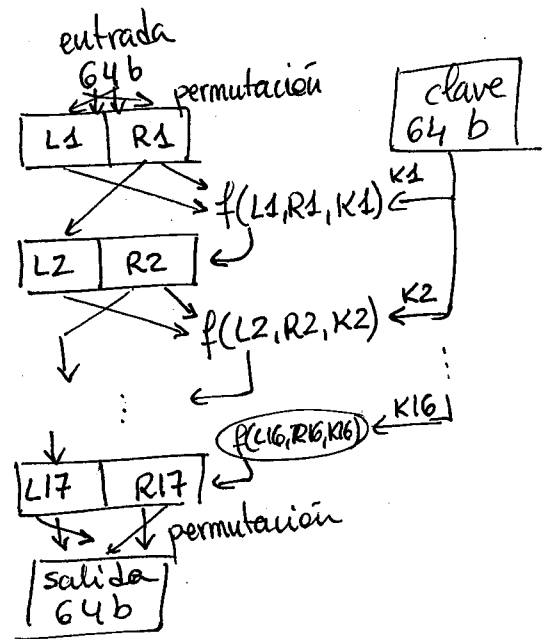 entrada
64 b
permutación
clave
64 b
L1 R1
K1
f(L1,R1,K1)
L2 R2
K2
f(L2,R2,K2)
...
...
K16
f(L16,R16,K16)
L17 R17
permutación
salida
64 b